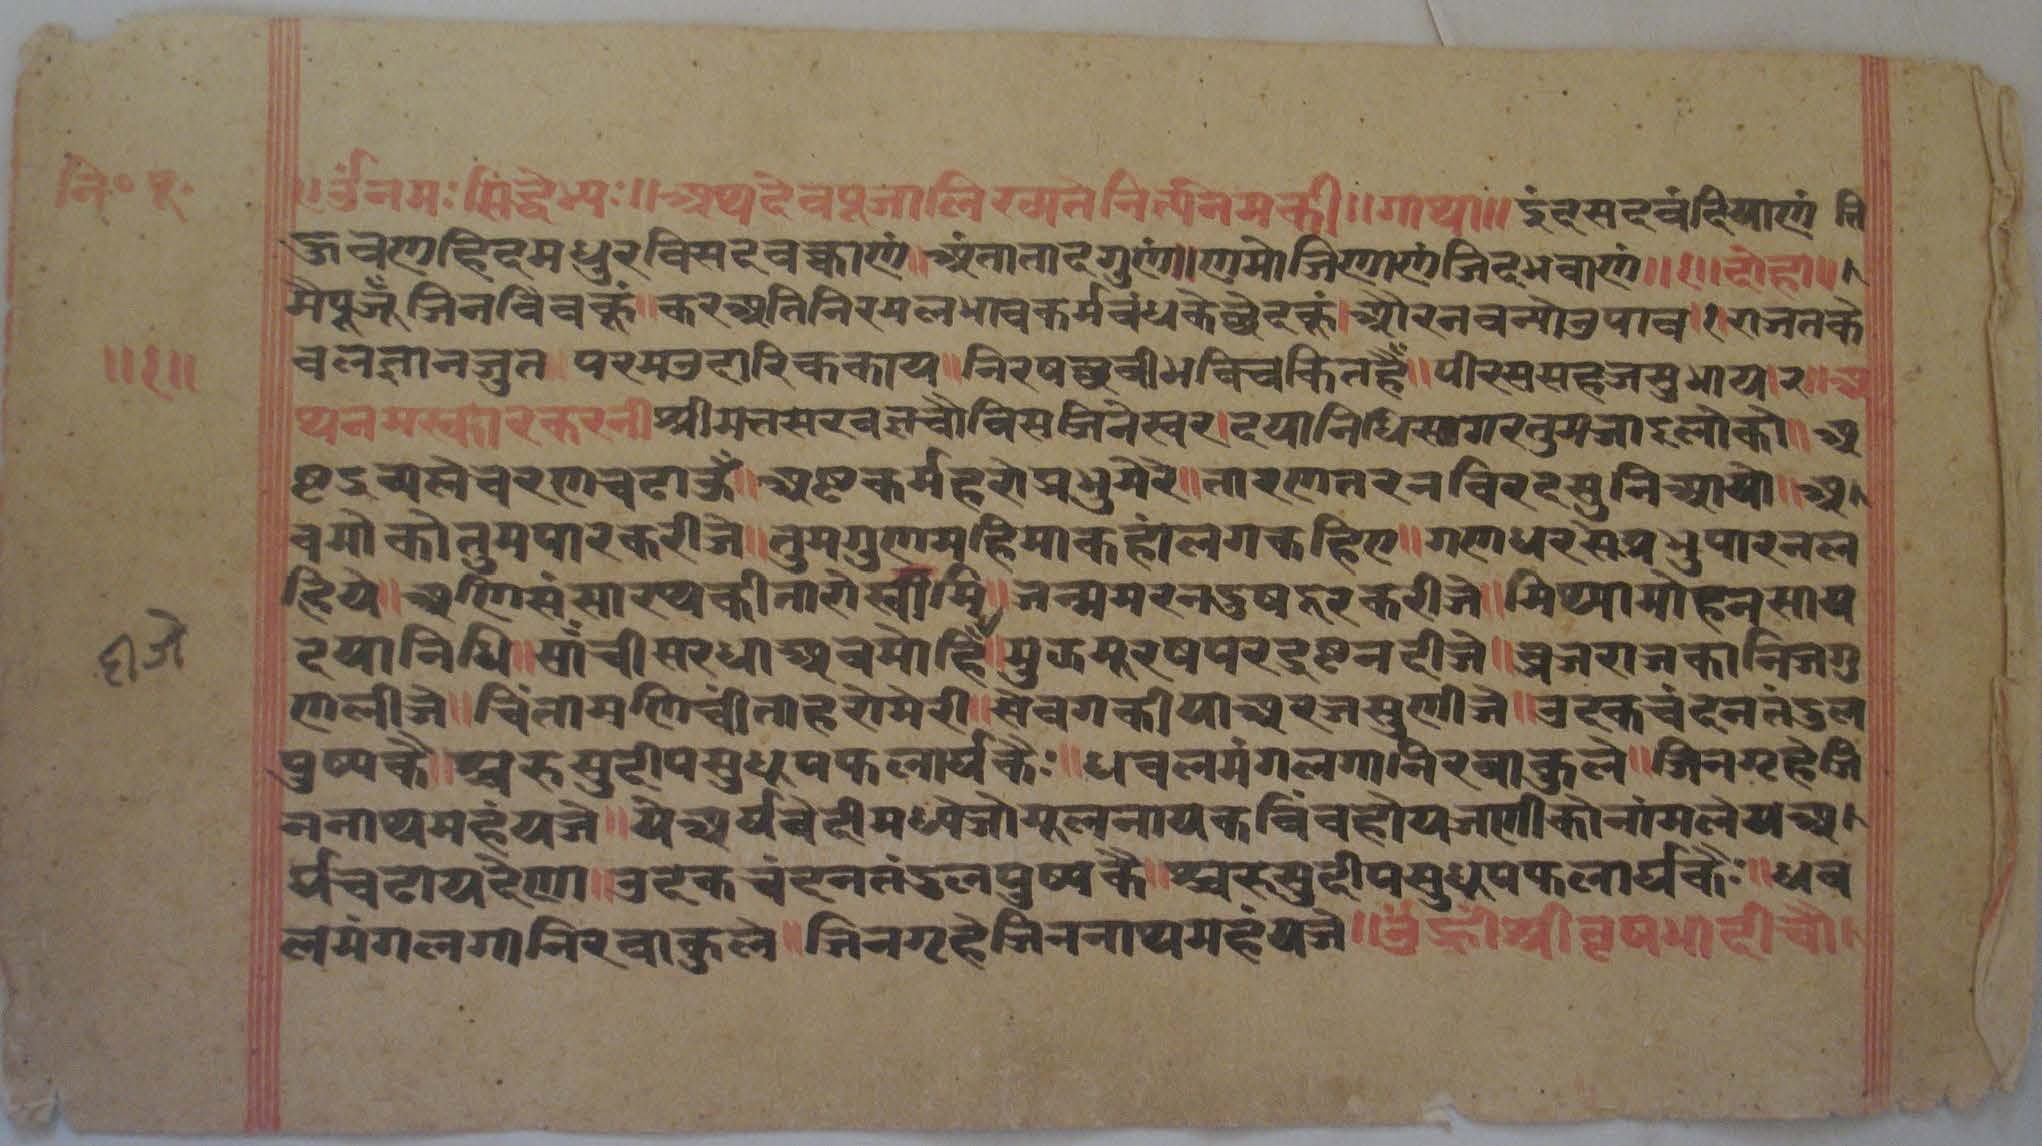 नि॰ पू॰
॥ॐनमःसिद्धेभ्यः॥अथदेवपूजालिख्यतेनित्यनेमकी॥गाथा॥इंदसदवंदियाणं ति
ऊवणहिदमधुरविसदवक्काणं॥अंतातादगुणं।णमोजिणाणंजिदभवाणं॥१॥दोहा॥
मैपूजूँजिनविंवकूं॥करअतिनिरमलभावकर्मबंधकेछेदकूं।औरनवन्योउपाव।१राजतके
॥१॥
वलज्ञानजुत परमउदारिककाय॥निरषछवीभविचकितहैँ॥पीरससहजसुभाय।२॥अ
थनमस्कारकरनी।श्रीमतसरवज्ञचौविसजिनेस्वर।दयानिधिसागरतुमजाइलोको॥अ
ष्टद्रव्यलेचरणचढाऊँ॥अष्टकर्महरोप्रभुमेरे॥तारणतरनविरदसुनिआयो॥अ
वमोकोतुमपारकरीजे॥तुमगुणमहिमाकहांलगकहिए॥गणधरसेप्रभुपारनल
हिये॥ जन्ममरनदुषदूरकरीजे॥मिथ्यामोहनसाय
दीजे
दयानिधि॥सांचीसरधाअवमोहिँ॥मुऊमूरषपरद्रष्टनदीजे॥व्रजराजकोनिजगु
णलीजे॥चिंतामणिचींताहरोमेरी॥सेवगकीयाअरजसुणीजे॥उदकचंदनतंडुल
पुष्पकै॥श्चरुसुदीपसुधूपफलार्घकैः॥धवलमंगलगानिरवाकुले॥जिनगृहेजि
ननाथमहंयजे॥येअर्घवेदीमध्येजोमूलनायकविंवहोयजाणीकोनांमलेयअ
र्घचढायदेणा॥उदकचंदनतंडुलपुष्पकै॥श्चरुसुदीपसुधूपफलार्घकैः॥धव
लमंगलगानिरवाकुले॥जिनगृहेजिननाथमहंयजे॥ॐह्रीँश्रीवृषभादीचौ